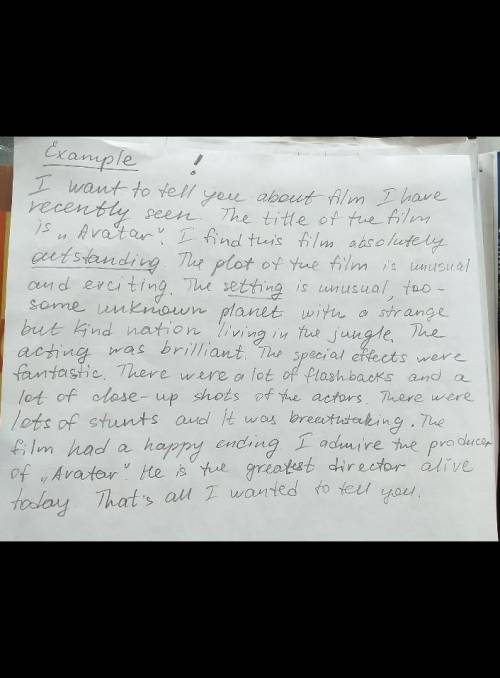 Example !
I want to tell you about film I have
recently seen. The title of the film
is „Avatar". I find this film absolutely
outstanding. The plot of the film is unusual
and exciting. The setting is unusual, too -
some unknown planet with a strange
but kind nation living in the jungle. The
acting was brilliant. The special effects were
fantastic. There were a lot of flashbacks and a
lot of close-up shots of the actors. There were
lots of stunts and it was breathtaking. The
film had a happy ending I admire the producer
of „Avatar". He is the greatest director alive
today. That's all I wanted to tell you.